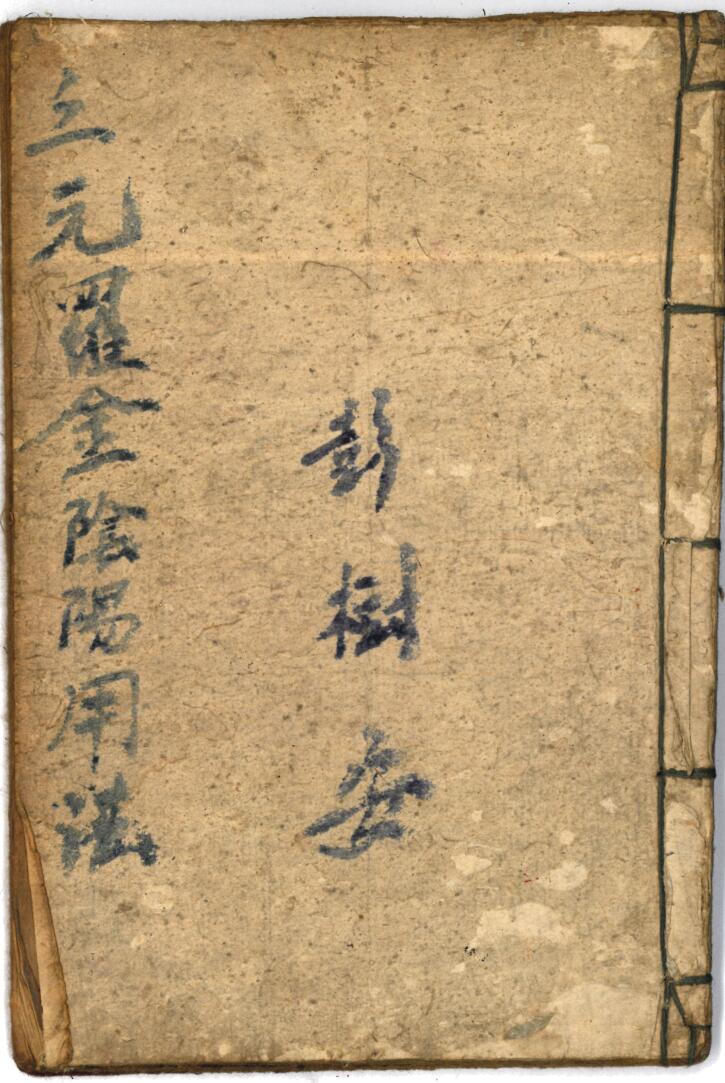 彭樹
三元羅金陰陽用法